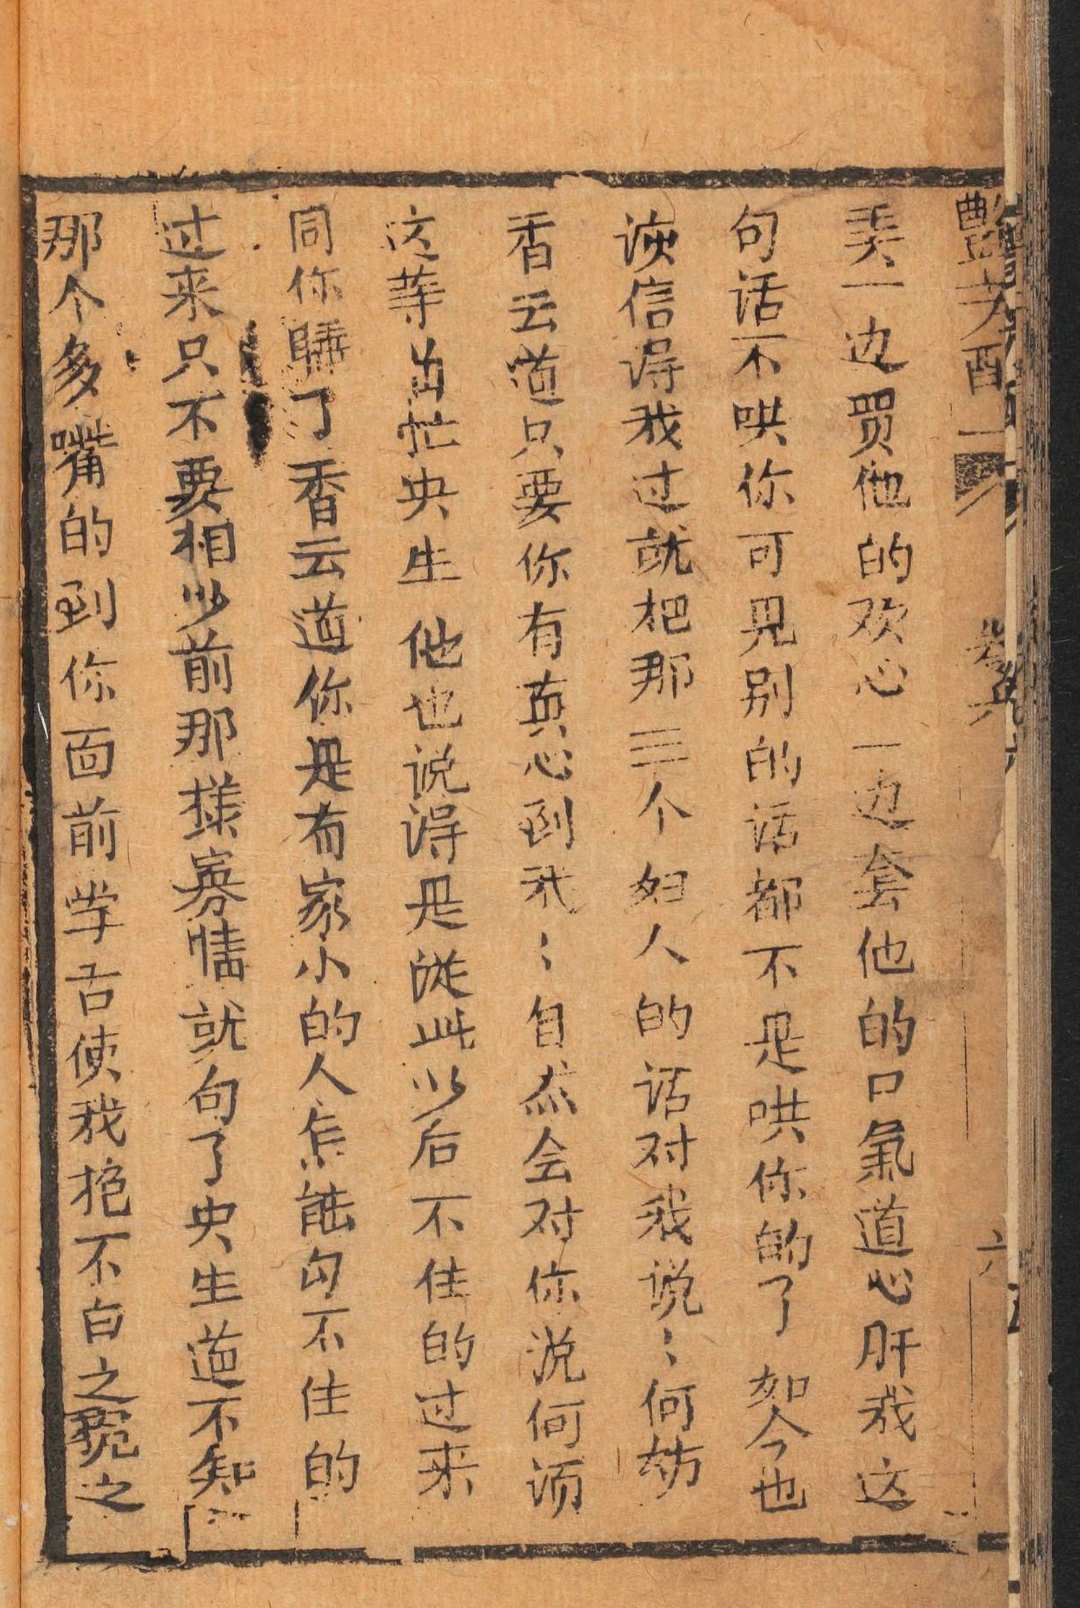 艷芳配一 卷六 六
美一边买他的欢心一边套他的口氣道心肝我这
句话不哄你可见别的话都不是哄你的了如今也
该信得我过就把那三个妇人的话对我说〻何妨
香云道只要你有真心到我〻自然会对你说何须
这等着忙央生他也说得是従此以后不住的过来
同你睡了香云道你是有家小的人怎能勾不住的
过来只不要相以前那様寡情就句了央生道不知
那个多嘴的到你面前学舌使我抱不白之冤之